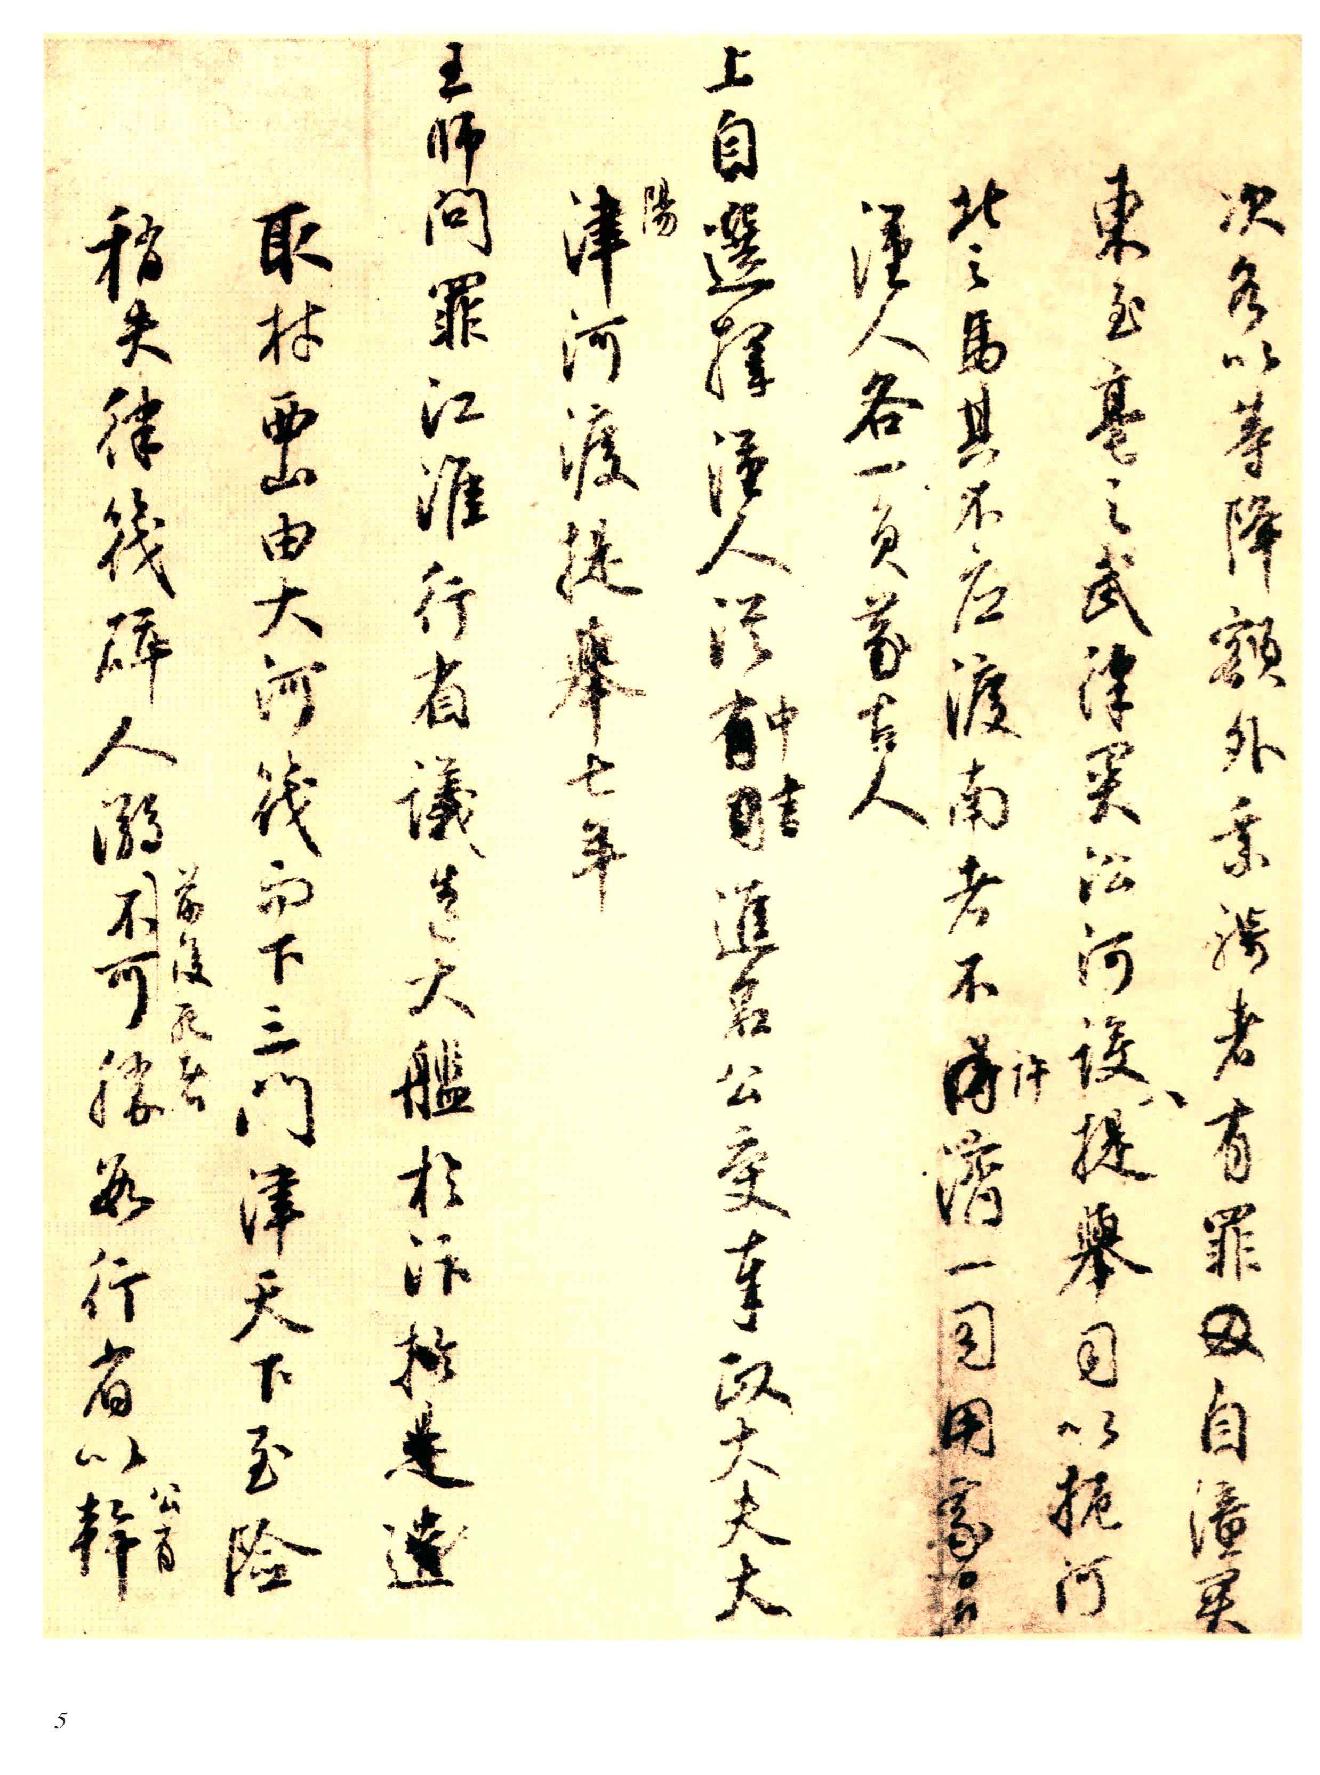 次各以等降額外乘騎者有罪又自潼關
東至亳之武津關沿河設八提舉司以扼河
北之馬其不應渡南者不許濟一司用蒙古
漢人各一員蒙古人
上自選擇漢人從中書進名公受奉政大夫大
陽津河渡提舉七年
王師問罪江淮行省議造大艦於汴於是遣
取材西山由大河筏而下三門津天下至險
稍失律筏碎人溺前後死者不可勝數行省以公有幹
5